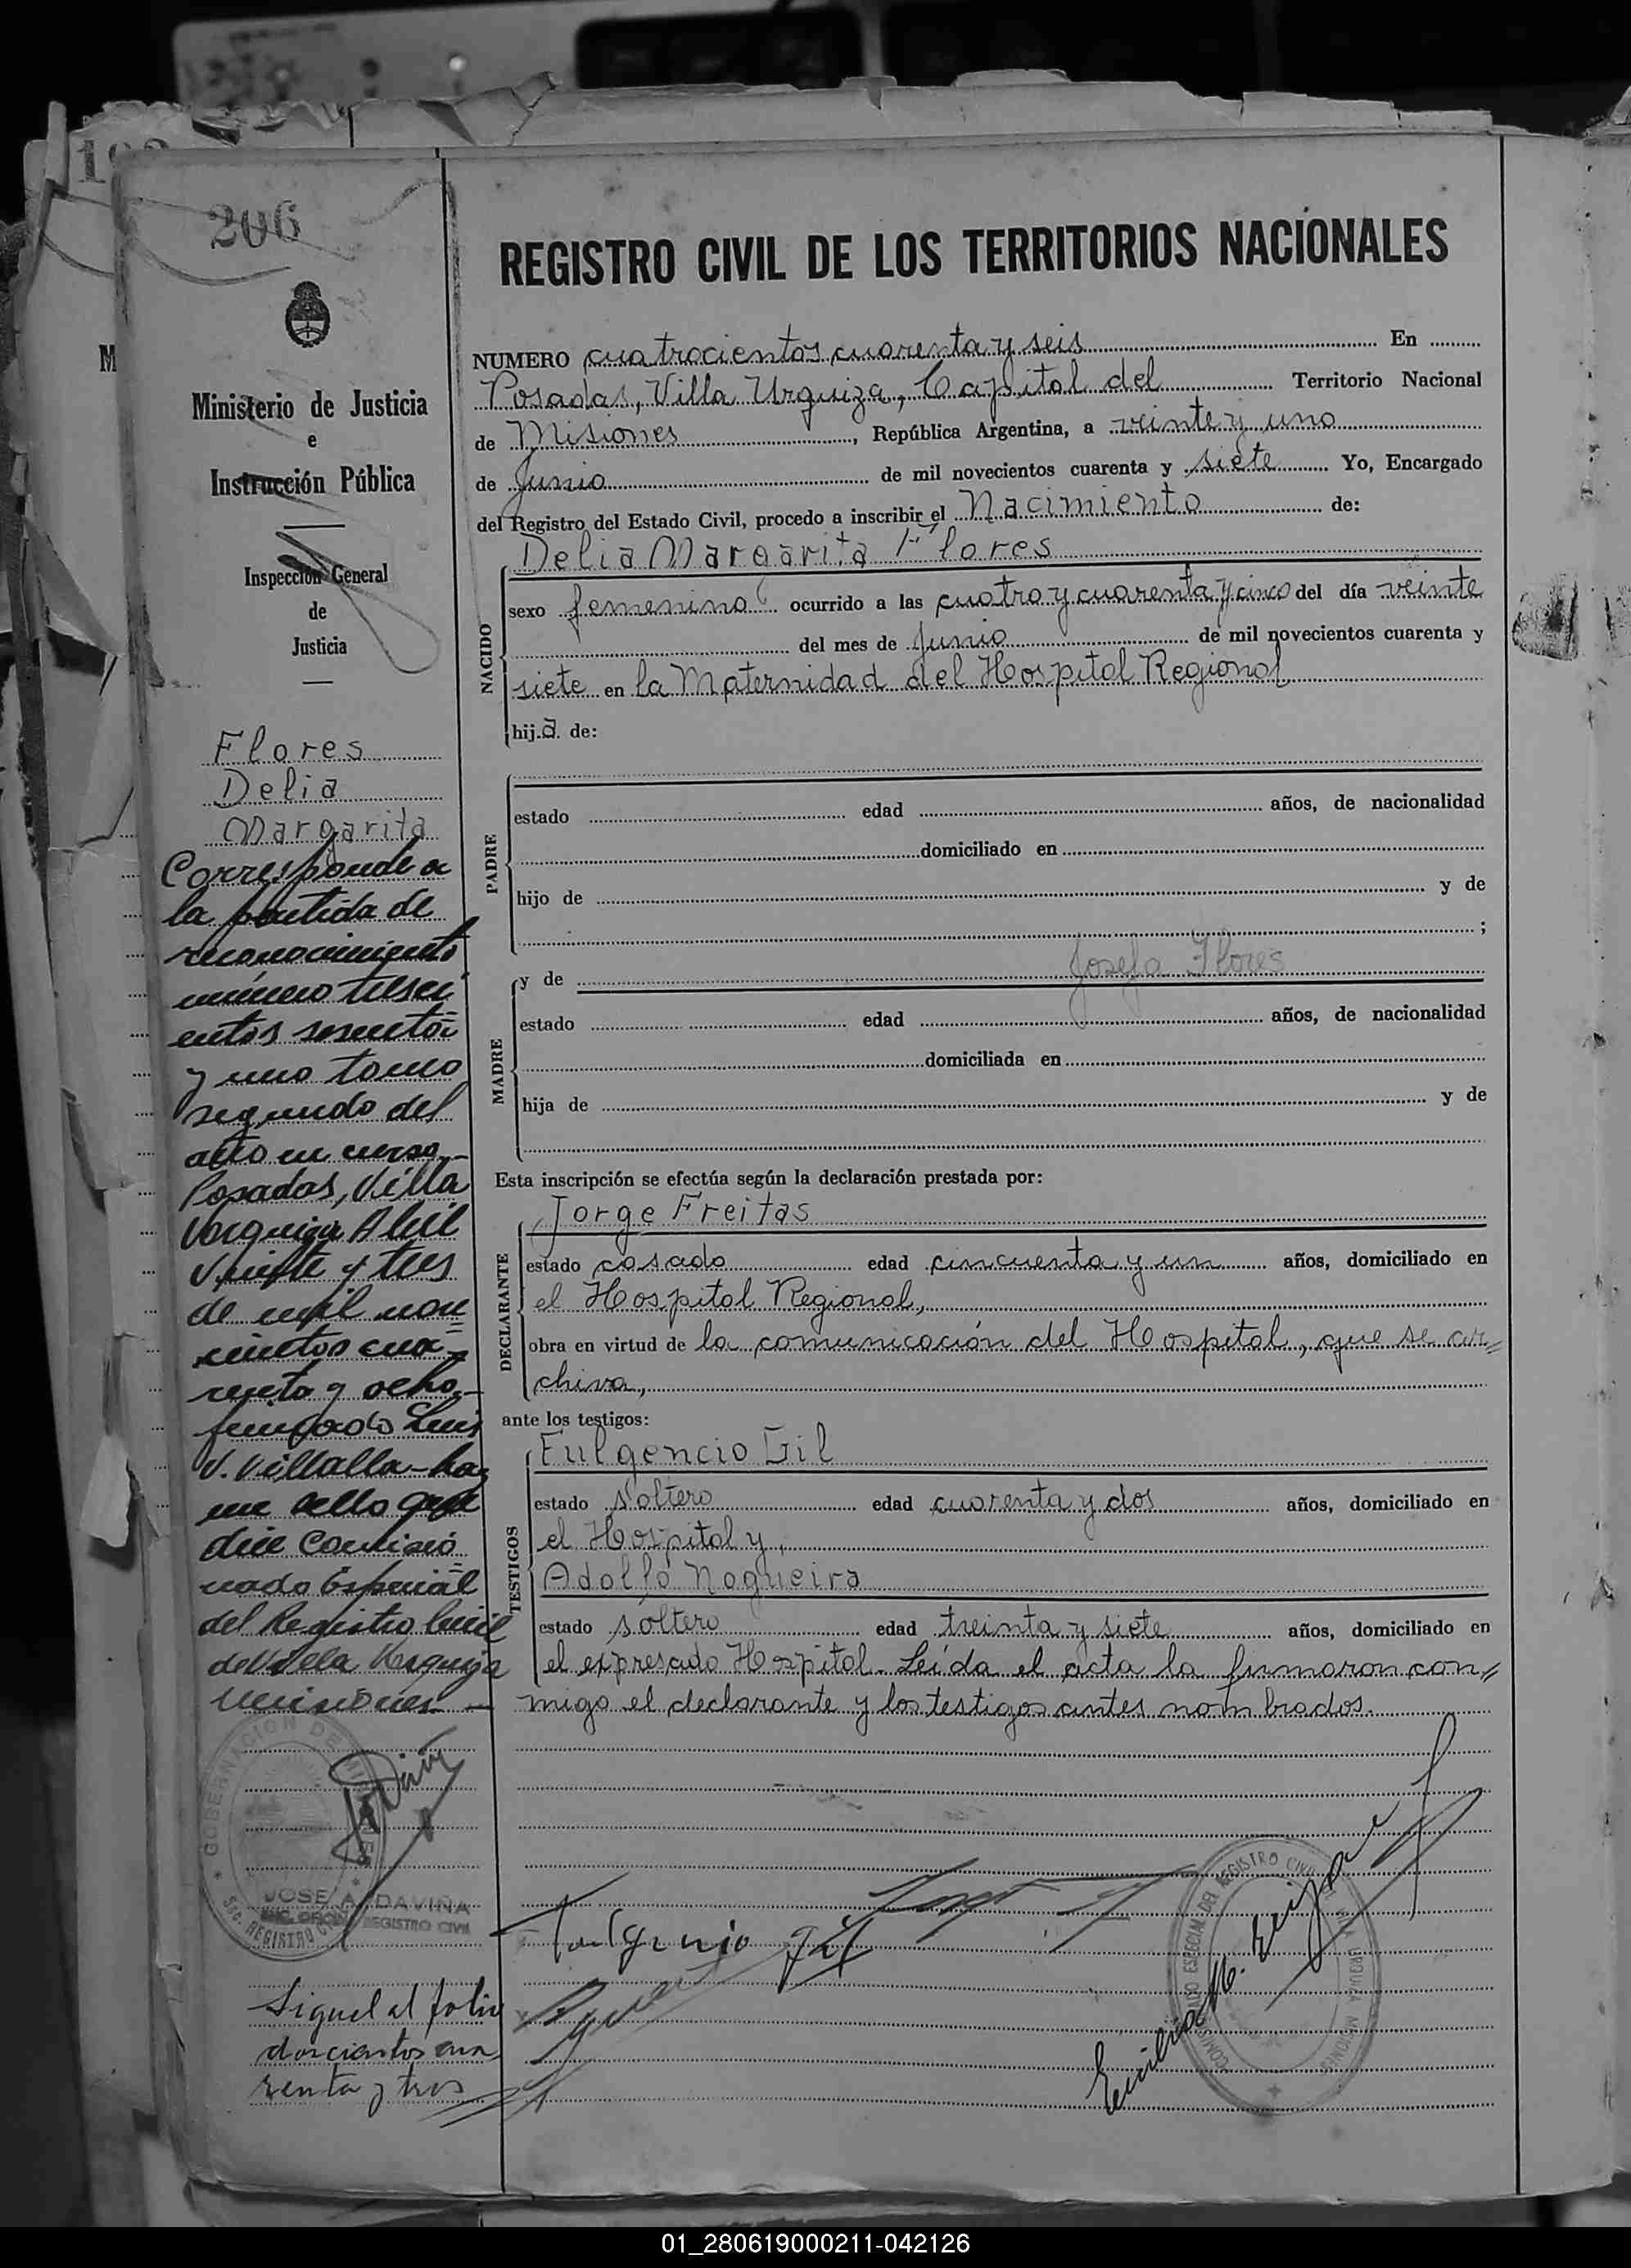 206
Ministerio de Justicia
e
Instrucción Pública
Inspección General
de
Justicia
Flores
Delia
Margarita
Corresponde a
la partida de
reconocimiento
número tresci
entos sesenta
y uno tomo
segundo del
año en curso.-
Posadas, Villa
Urquiza Abril
Veinte y tres
de mil nove
cientos cua=
renta y ocho.-
firmado Luis
V. Villalla - hay
un sello que
dice Comisio=
nado Especial
del Registro Civil
de Villa Urquiza
Misiones.-
GOBERNACION DE MISIONES
JOSE A. DAVIÑA
REGISTRO CIVIL
Sigue al folio
doscientos cua
renta y tres
REGISTRO CIVIL DE LOS TERRITORIOS NACIONALES
NUMERO cuatrocientos cuarenta y seis En
Posadas, Villa Urquiza, Capital del Territorio Nacional
de Misiones, República Argentina, a veinte y uno
de Junio de mil novecientos cuarenta y siete Yo, Encargado
del Registro del Estado Civil, procedo a inscribir el Nacimiento de:
Delia Margarita Flores
NACIDO
sexo femenino ocurrido a las cuatro y cuarenta y cinco del día veinte
del mes de Junio de mil novecientos cuarenta y
siete en la Maternidad del Hospital Regional
hij.a. de:
PADRE
estado edad años, de nacionalidad
domiciliado en
hijo de y de
;
MADRE
y de Josefa Flores
estado edad años, de nacionalidad
domiciliada en
hija de y de
Esta inscripción se efectúa según la declaración prestada por:
DECLARANTE
Jorge Freitas
estado casado edad cincuenta y un años, domiciliado en
el Hospital Regional,
obra en virtud de la comunicación del Hospital, que se ar=
chiva,
ante los testigos:
TESTIGOS
Fulgencio Gil
estado soltero edad cuarenta y dos años, domiciliado en
el Hospital y,
Adolfo Nogueira
estado soltero edad treinta y siete años, domiciliado en
el expresado Hospital. Leída el acta la firmaron con=
migo el declarante y los testigos antes nombrados.
Fulgencio Gil
01_280619000211-042126